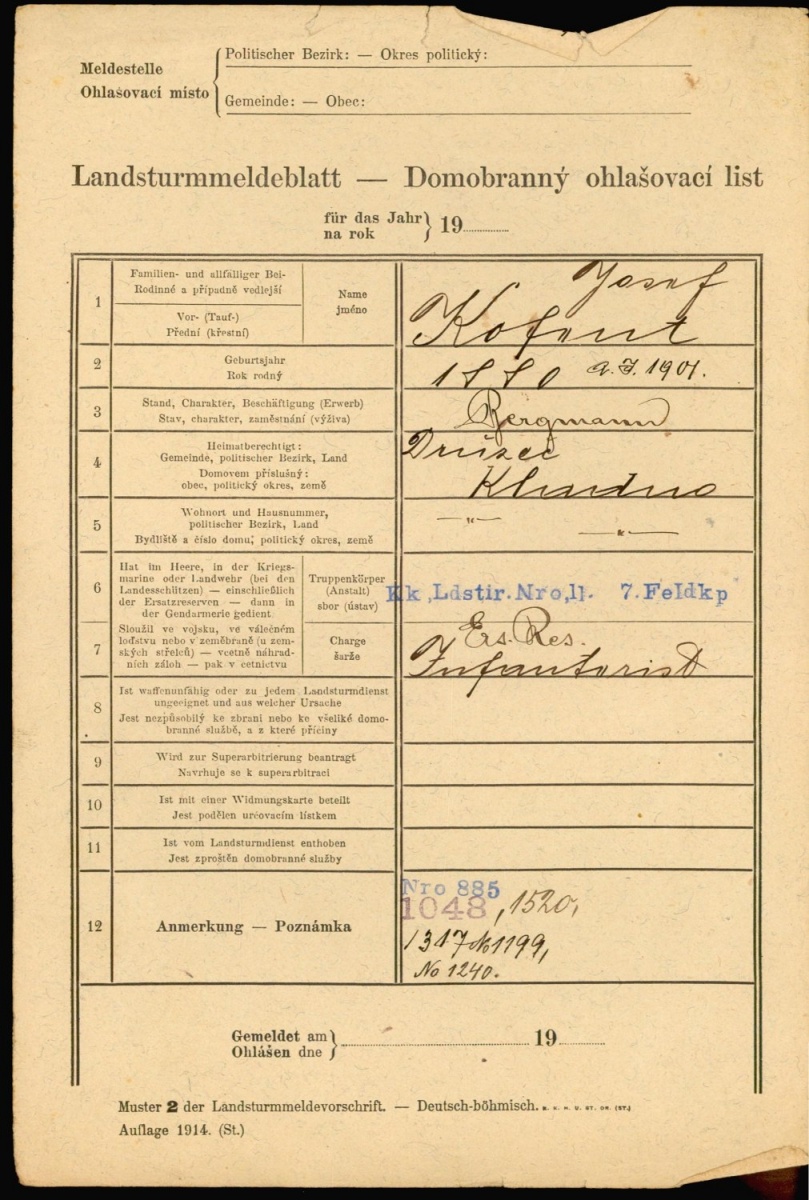 Meldestelle
Ohlašovací místo
Politischer Bezirk: — Okres politický:
Gemeinde: — Obec:
Landsturmmeldeblatt — Domobranný ohlašovací list
für das Jahr
na rok
19
1
Familien- und allfälliger Bei-
Rodinné a případně vedlejší
Vor- (Tauf-)
Přední (křestní)
Name
jméno
Josef
Kofent
2
Geburtsjahr
Rok rodný
1880 a. J. 1901.
3
Stand, Charakter, Beschäftigung (Erwerb)
Stav, charakter, zaměstnání (výživa)
Bergmann
4
Heimatberechtigt:
Gemeinde, politischer Bezirk, Land
Domovem příslušný:
obec, politický okres, země
Družec
Kladno
5
Wohnort und Hausnummer,
politischer Bezirk, Land
Bydliště a číslo domu, politický okres, země
—"—
—"—
6
Hat im Heere, in der Kriegs-
marine oder Landwehr (bei den
Landesschützen) — einschließlich
der Ersatzreserven — dann in
der Gendarmerie gedient
Truppenkörper
(Anstalt)
sbor (ústav)
Kk ,Ldstir.Nro,11. 7.Feldkp
7
Sloužil ve vojsku, ve válečném
loďstvu nebo v zeměbraně (u zem-
ských střelců) — vcetně náhrad-
ních záloh — pak v četnictvu
Charge
šarže
Ers. Res.
Infanterist
8
Ist waffenunfähig oder zu jedem Landsturmdienst
ungeeignet und aus welcher Ursache
Jest nezpůsobilý ke zbrani nebo ke všeliké domo-
branné službě, a z které příčiny
9
Wird zur Superarbitrierung beantragt
Navrhuje se k superarbitraci
10
Ist mit einer Widmungskarte beteilt
Jest podělen určovacím lístkem
11
Ist vom Landsturmdienst enthoben
Jest zproštěn domobranné služby
12
Anmerkung — Poznámka
Nro 885
1048 , 1520,
1317 No 1199,
No 1240.
Gemeldet am
Ohlášen dne
19
Muster 2 der Landsturmmeldevorschrift. — Deutsch-böhmisch.
Auflage 1914. (St.)